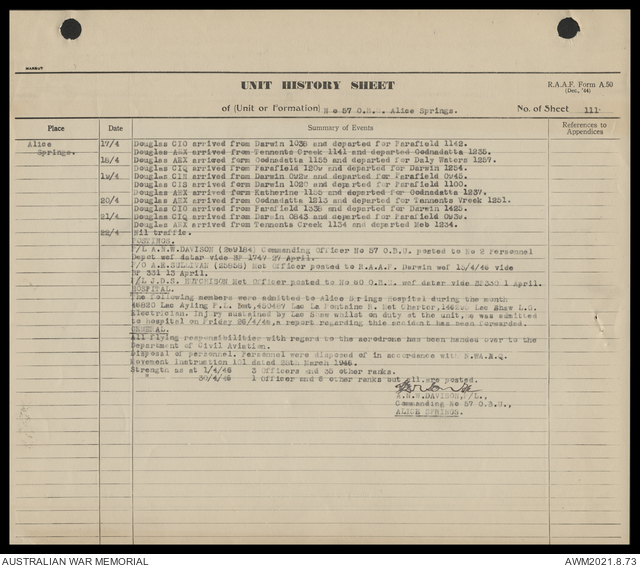 MARBUT
UNIT HISTORY SHEET
R.A.A.F. Form A.50
(Dec., '44)
of (Unit or Formation) N o 57 O.B.U. Alice Springs.
No. of Sheet 111.
Place Date Summary of Events References to Appendices
Alice Springs.
17/4 Douglas CIO arrived from Darwin 1038 and departed for Parafield 1142.
Douglas AEX arrived from Tennants Creek 1141 and departed Oodnadatta 1235.
18/4 Douglas AEX arrived form Oodnadatta 1155 and departed for Daly Waters 1257.
Douglas CIQ arrived from Parafield 1209 and departed for Darwin 1254.
19/4 Douglas CIN arrived from Darwin and departed for Parafield 0945.
Douglas CIS arrived from Darwin 1020 and departed for Parafield 1100.
Douglas AEX arrived from Katherine 1155 and departed for Oodnadatta 1237.
20/4 Douglas AEX arrived from Oodnadatta 1213 and departed for Tannants Vreek 1251.
Douglas CIO arrived from Parafield 1338 and departed for Darwin 1425.
21/4 Douglas CIQ arrived from Darwin 0843 and departed for Parafield 0939.
Douglas AEX arrived from Tennants Creek 1134 and departed Meb 1234.
22/4 Nil traffic.
POSTINGS.
F/L A.N.W.DAVISON (269184) Commanding Officer No 57 O.B.U. posted to No 2 Personnel
Depot wef datar vide BP 1747 27 April.
F/O A.R.SULLIVAN (25858) Met Officer posted to R.A.A.F. Darwin wef 15/4/46 vide
BP 331 13 April.
F/L J.D.S. HUTCHISON Met Officer posted to No 60 O.B.U. wef datar vide BP330 1 April.
HOSPITAL.
The following members were admitted to Alice Springs Hospital during the month
45820 Lac Ayling P.L. Lac La Fontaine N. Met Charter, Lac Shaw L.G.
Electrician. Injury sustained by Lac Shaw whilst on duty at the unit, he was admitted
to hospital on Friday 26/4/46, a report regarding this accident has been forwarded.
GENERAL.
All flying responsibilities with regard to the aerodrome has been handed over to the
Department of Civil Aviation.
Disposal of personnel. Personnel were disposed of in accordance with N.WA.H.Q.
Movement Instruction 101 dated 28th March 1946.
Strength as at 1/4/46 3 Officers and 35 other ranks.
30/4/46 1 Officer and 8 other ranks but all are posted.
A.N.W.DAVISON, F/L.,
Commanding No 57 O.B.U.,
ALICE SPRINGS.
AUSTRALIAN WAR MEMORIAL
AWM2021.8.73